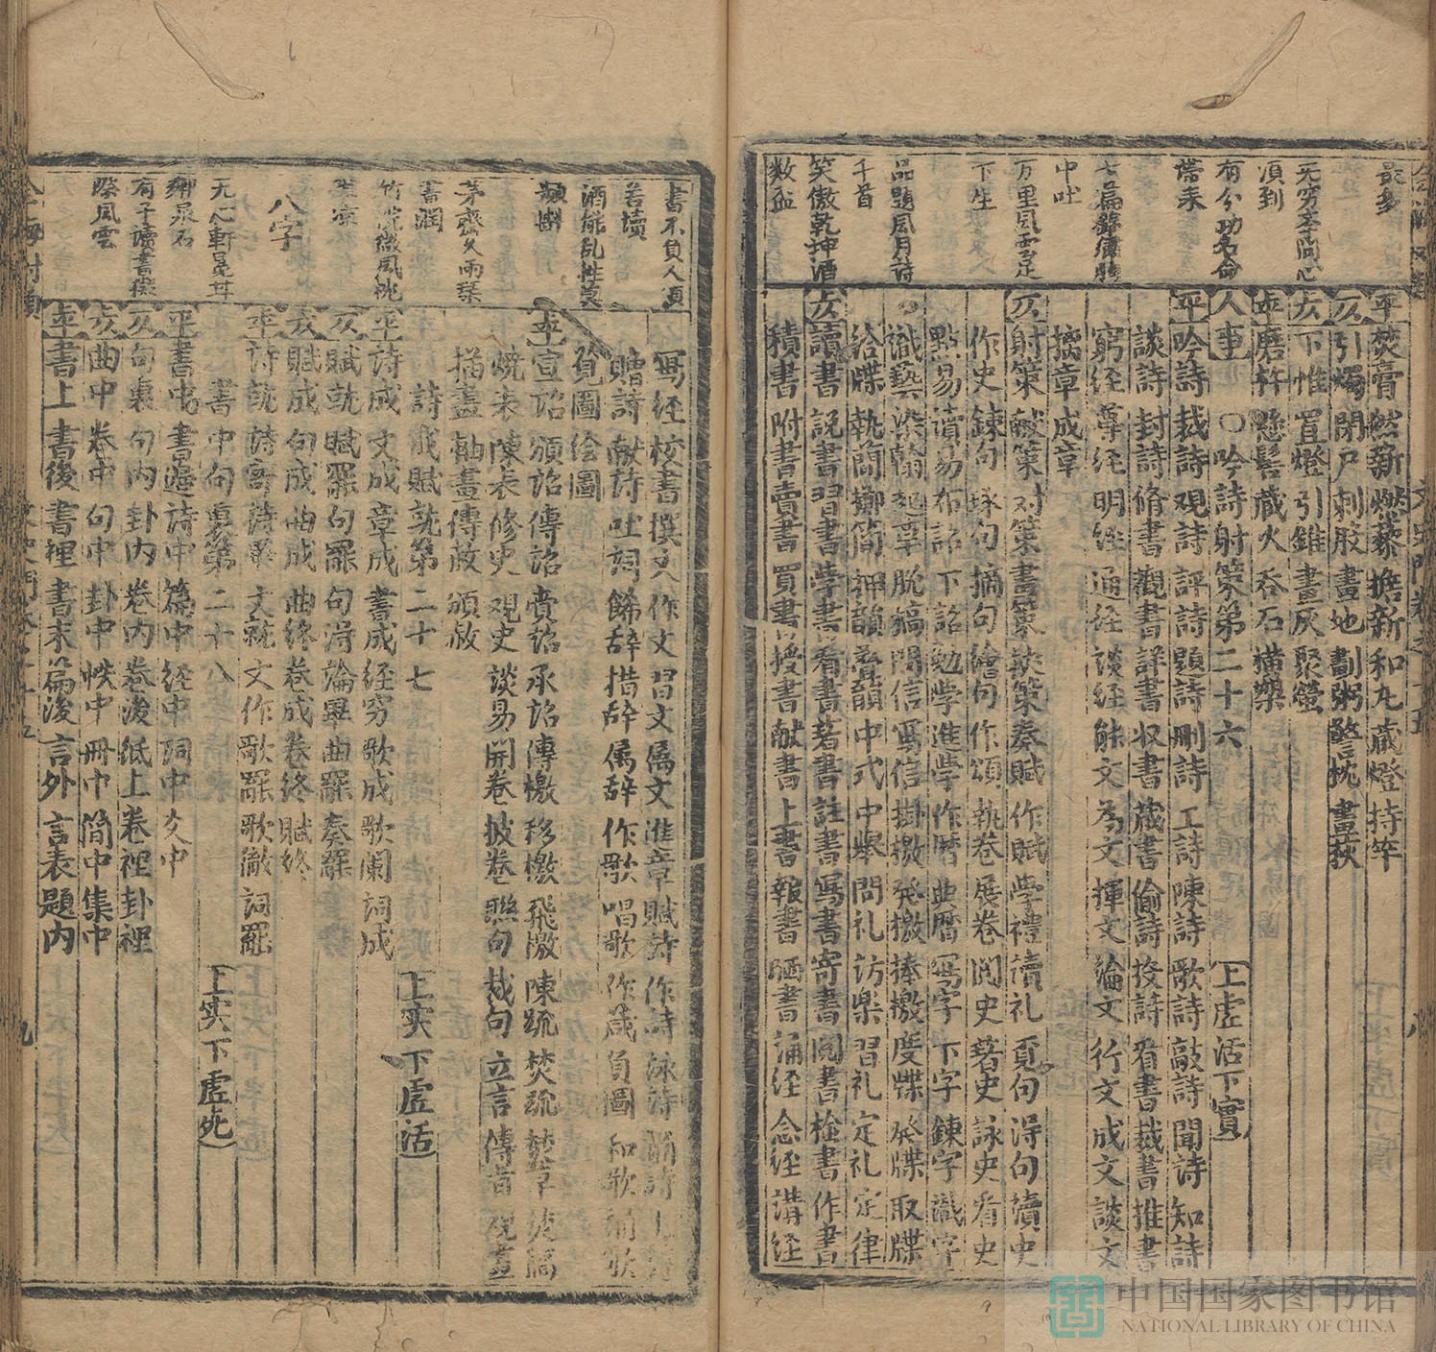 最多
无穷孝尚心
頃到
有分功名命
搭来
七篇錦
中吐
万里風雲足
下生
品題風月詩
千首
笑傲乾坤酒
数盃
平 焚膏 然薪 燃藜 擔薪 和丸 藏燈 持竿
仄 引燭 閉戸 刺股 畫地 劃粥 警枕 畫荻
仄 下帷 置燈 引錐 畫灰 聚螢
平 磨杵 懸髻 藏火 吞石 橫槊
人事 〇吟詩射策第二十六 上虛活下實
平 吟詩 裁詩 观詩 評詩 題詩 刪詩 工詩 陳詩 歌詩 敲詩 聞詩 知詩
談詩 封詩 脩書 觀書 詳書 收書 藏書 偷詩 投詩 看書 裁書 推書
窮経 尊経 明経 通経 談経 能文 为文 揮文 論文 行文 成文 談文
摛章 成章
仄 射策 献策 对策 書策 挾策 奏賦 作賦 學禮 讀礼 覓句 得句 讀史
作史 鍊句 琢句 摘句 繪句 作頌 執卷 展卷 閱史 著史 詠史 看史
點易 讀易 布詔 下詔 勉學 進學 作曆 典曆 寫字 下字 鍊字 識字
識藝 染翰 起草 脱稿 問信 寫信 掛檄 發檄 捧檄 度牒 發牒 取牒
給牒 執簡 擲簡 押韻 疊韻 中式 中舉 問礼 訪樂 習礼 定礼 定律
仄 讀書 説書 習書 學書 看書 著書 註書 寫書 寄書 閱書 檢書 作書
積書 附書 賣書 買書 授書 献書 上書 報書 晒書 誦経 念経 講経
書不負人須
苦讀
酒能乱性莫
茅齋久雨琴
書潤
竹院微風
八字
有子讀書
風雲
寫経 校書 撰文 作文 習文 属文 進章 賦詩 作詩 詠詩 誦詩
贈詩 献詩 吐詞 餙辞 措辞 属辞 作歌 唱歌 作箴 負圖 和歌 誦歌
覓圖 绘圖
平 宣詔 頒詔 傳詔 賫詔 承詔 傳檄 移檄 飛檄 陳疏 焚疏 焚草 焚稿
陳表 修史 观史 談易 開卷 披卷 聯句 裁句 立言 傳旨 观畫
描畫 軸畫 傳赦 頒赦
詩成賦就第二十七 上实下虛活
平 詩成 文成 章成 書成 経穷 歌成 歌闌 詞成
仄 賦就 賦罷 句罷 句得 論畢 曲罷 奏罷
仄 賦成 句成 曲成 曲終 卷成 卷終 賦終
平 詩就 詩寄 詩畢 文就 文作 歌罷 歌徹 詞罷
書中句裏第二十八 上实下虛死
平 書中 書邊 詩中 篇中 経中 詞中 文中
仄 句裏 句内 卦内 卷内 卷後 紙上 卷裡 卦裡
仄 曲中 卷中 句中 卦中 帙中 冊中 简中 集中
平 書上 書後 書裡 書末 篇後 言外 言表 題内
中国国家图书馆
NATIONAL LIBRARY OF CHINA